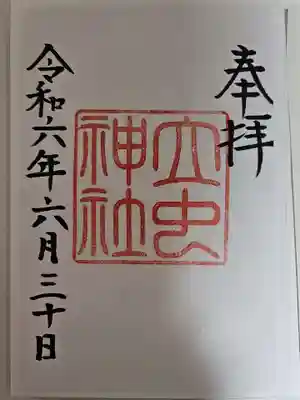 奉拝
立虫
神社
令和六年六月三十日